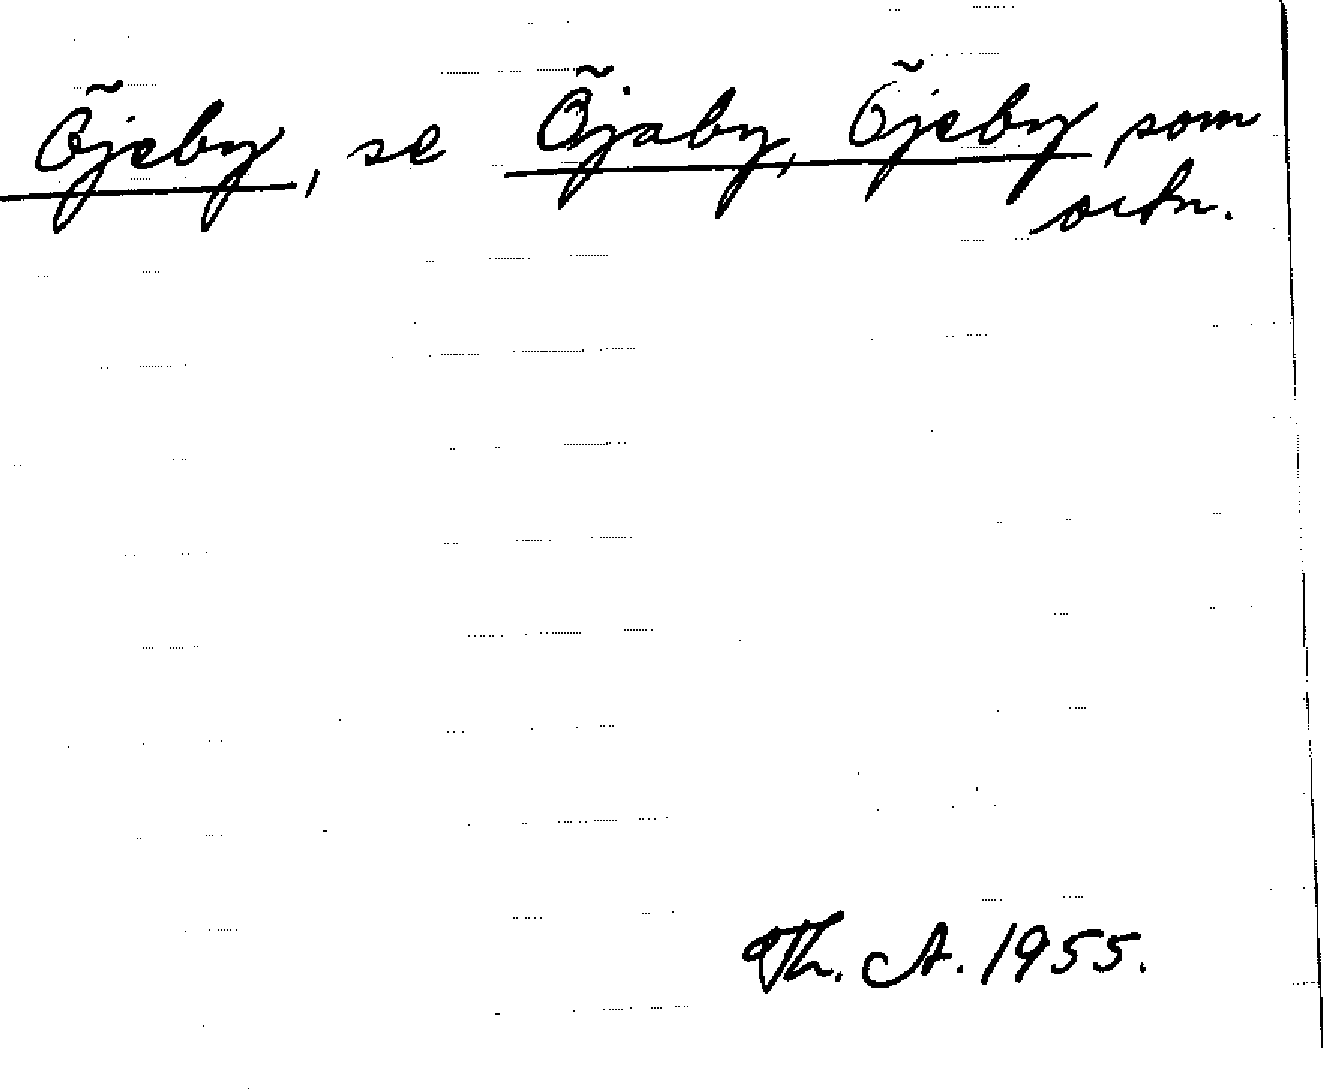 Öjeby, se Öjaby, Öjeby som
ortn.
Th. A. 1955.